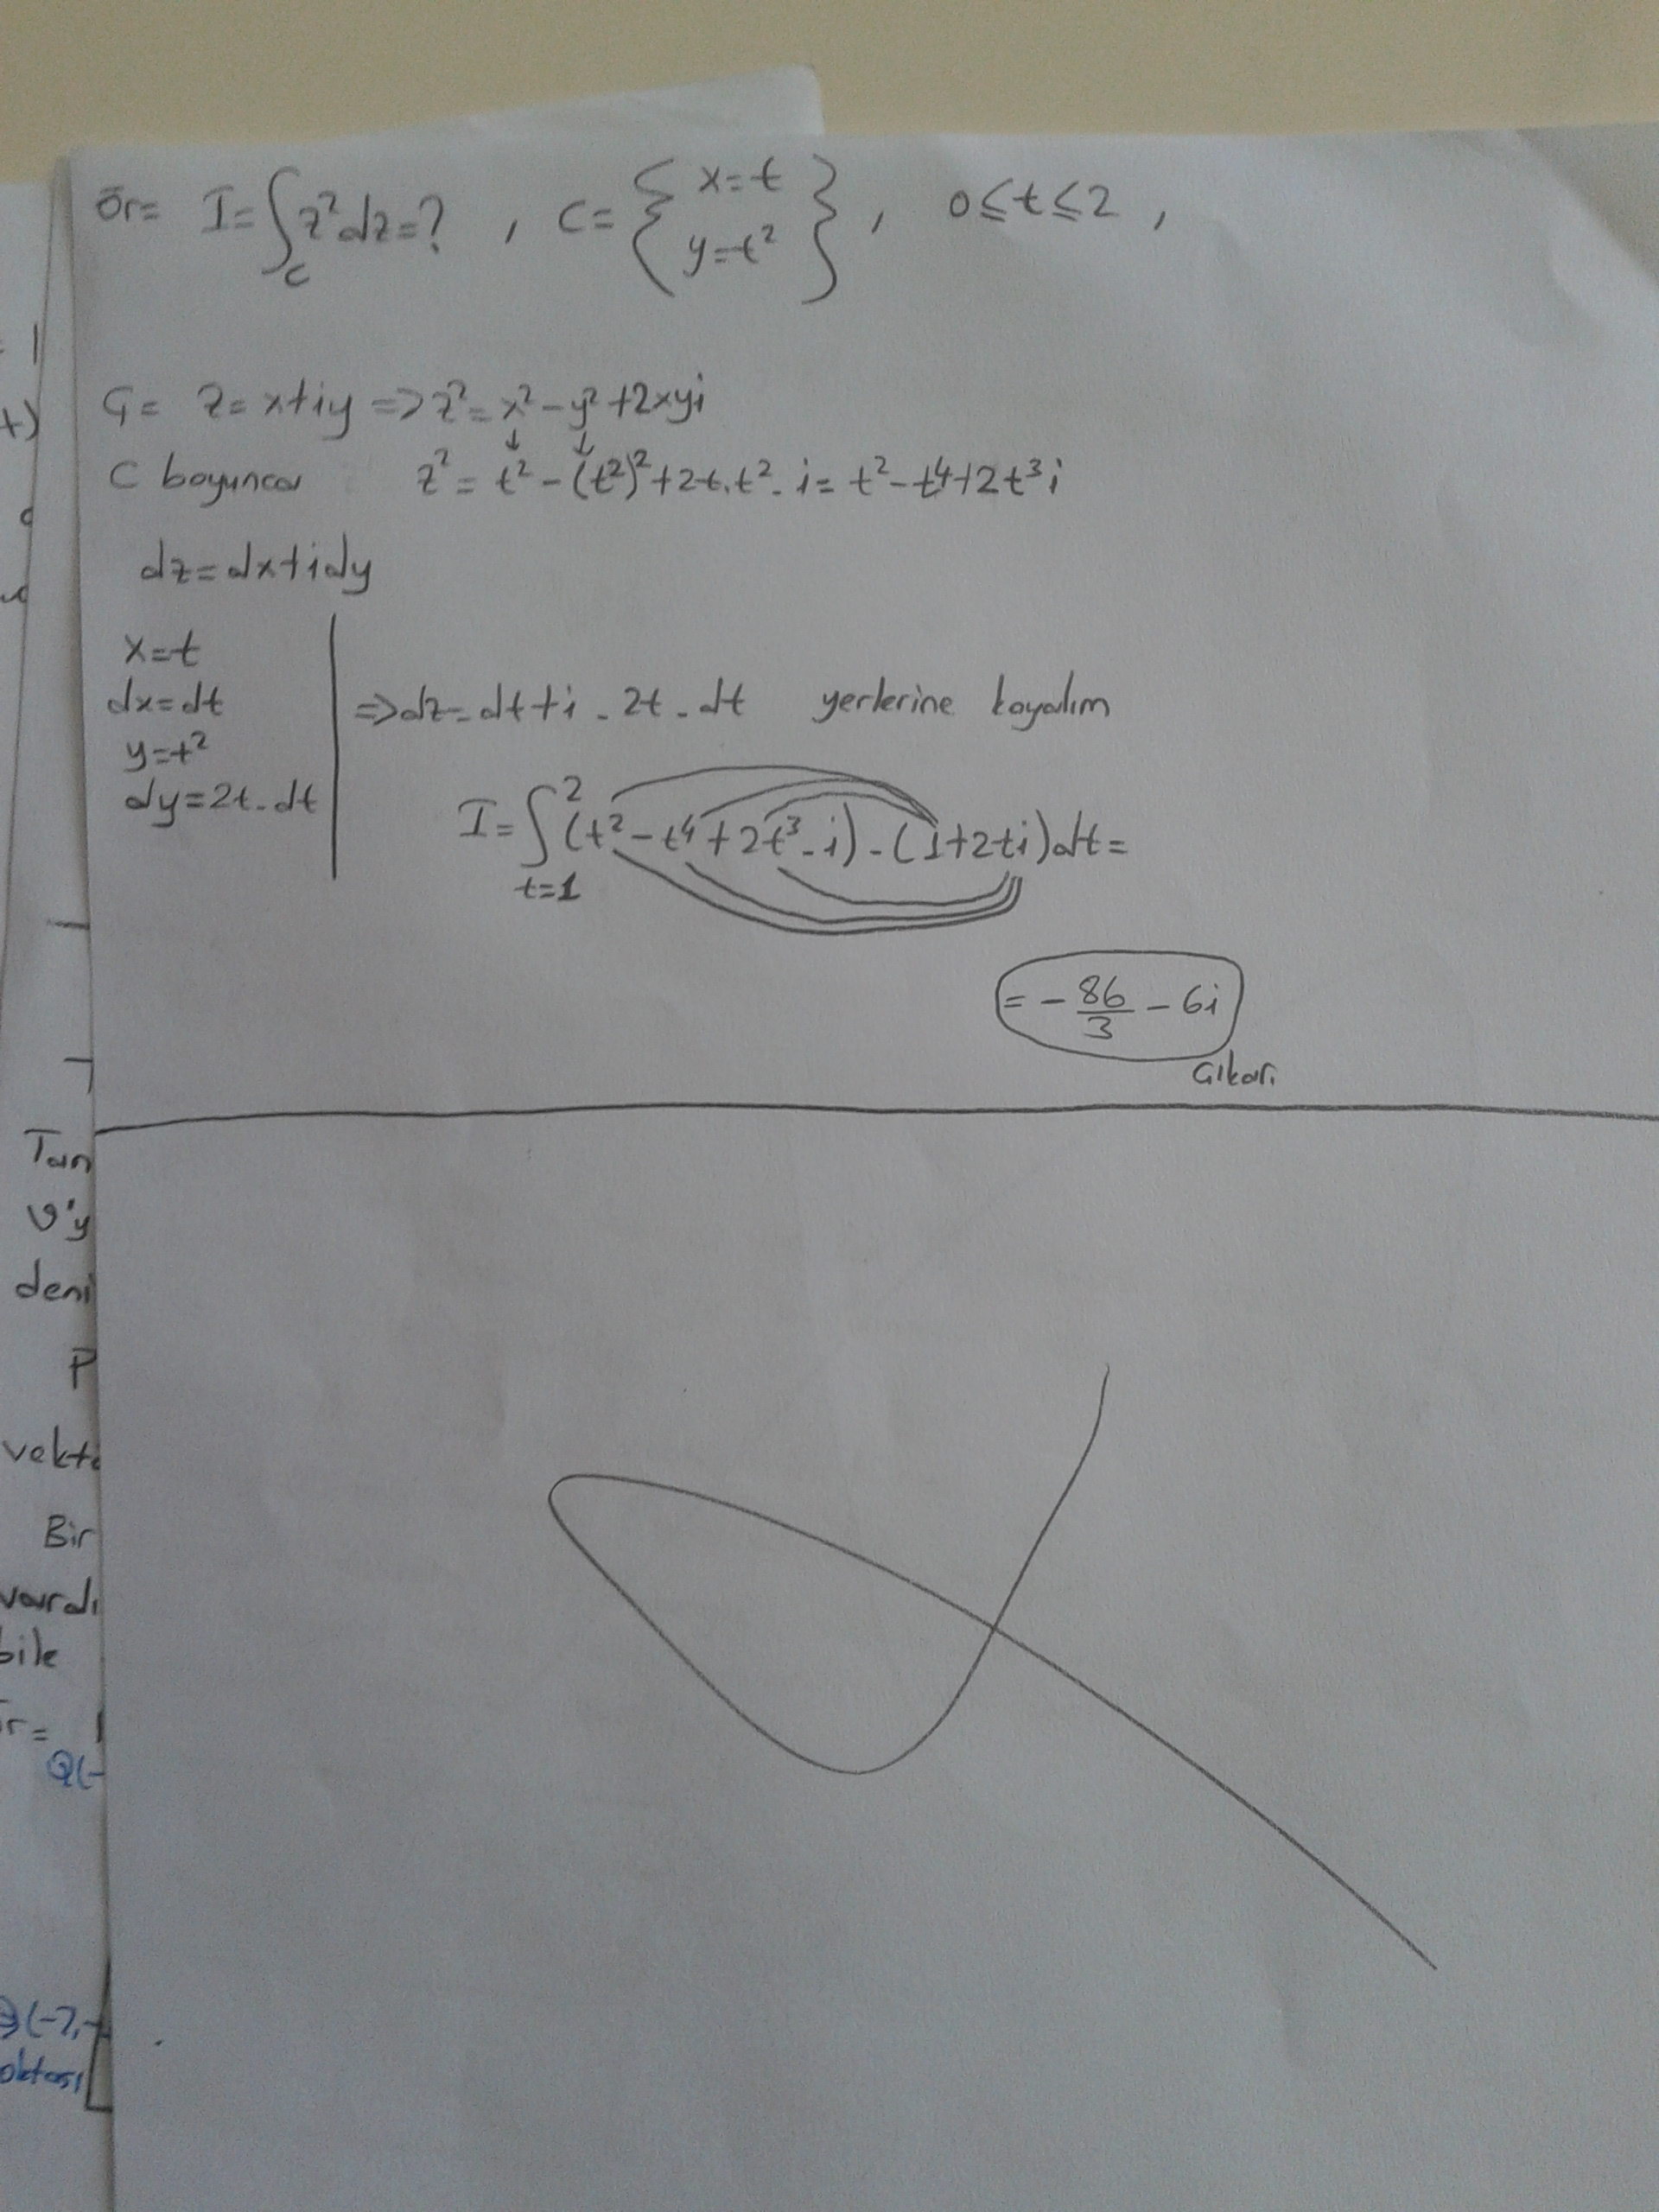 Ör= I=∫_C z² dz=? , C= { x=t y=t² } , 0≤t≤2 ,
Ç= z=x+iy ⇒ z²=x²-y²+2xyi
C boyunca z² = t²-(t²)²+2t.t².i= t²-t⁴+2t³i
dz=dx+idy
x=t
dx=dt
y=t²
dy=2t.dt
⇒dz=dt+i.2t.dt yerlerine koyalım
I=∫_{t=1}^{2} (t²-t⁴+2t³.i).(1+2ti)dt=
= -86/3 - 6i
Çıkar.
Tan
v'y
deni
P
vekt
Bir
vardı
bile
1
Q(-
(-7,-
oktası